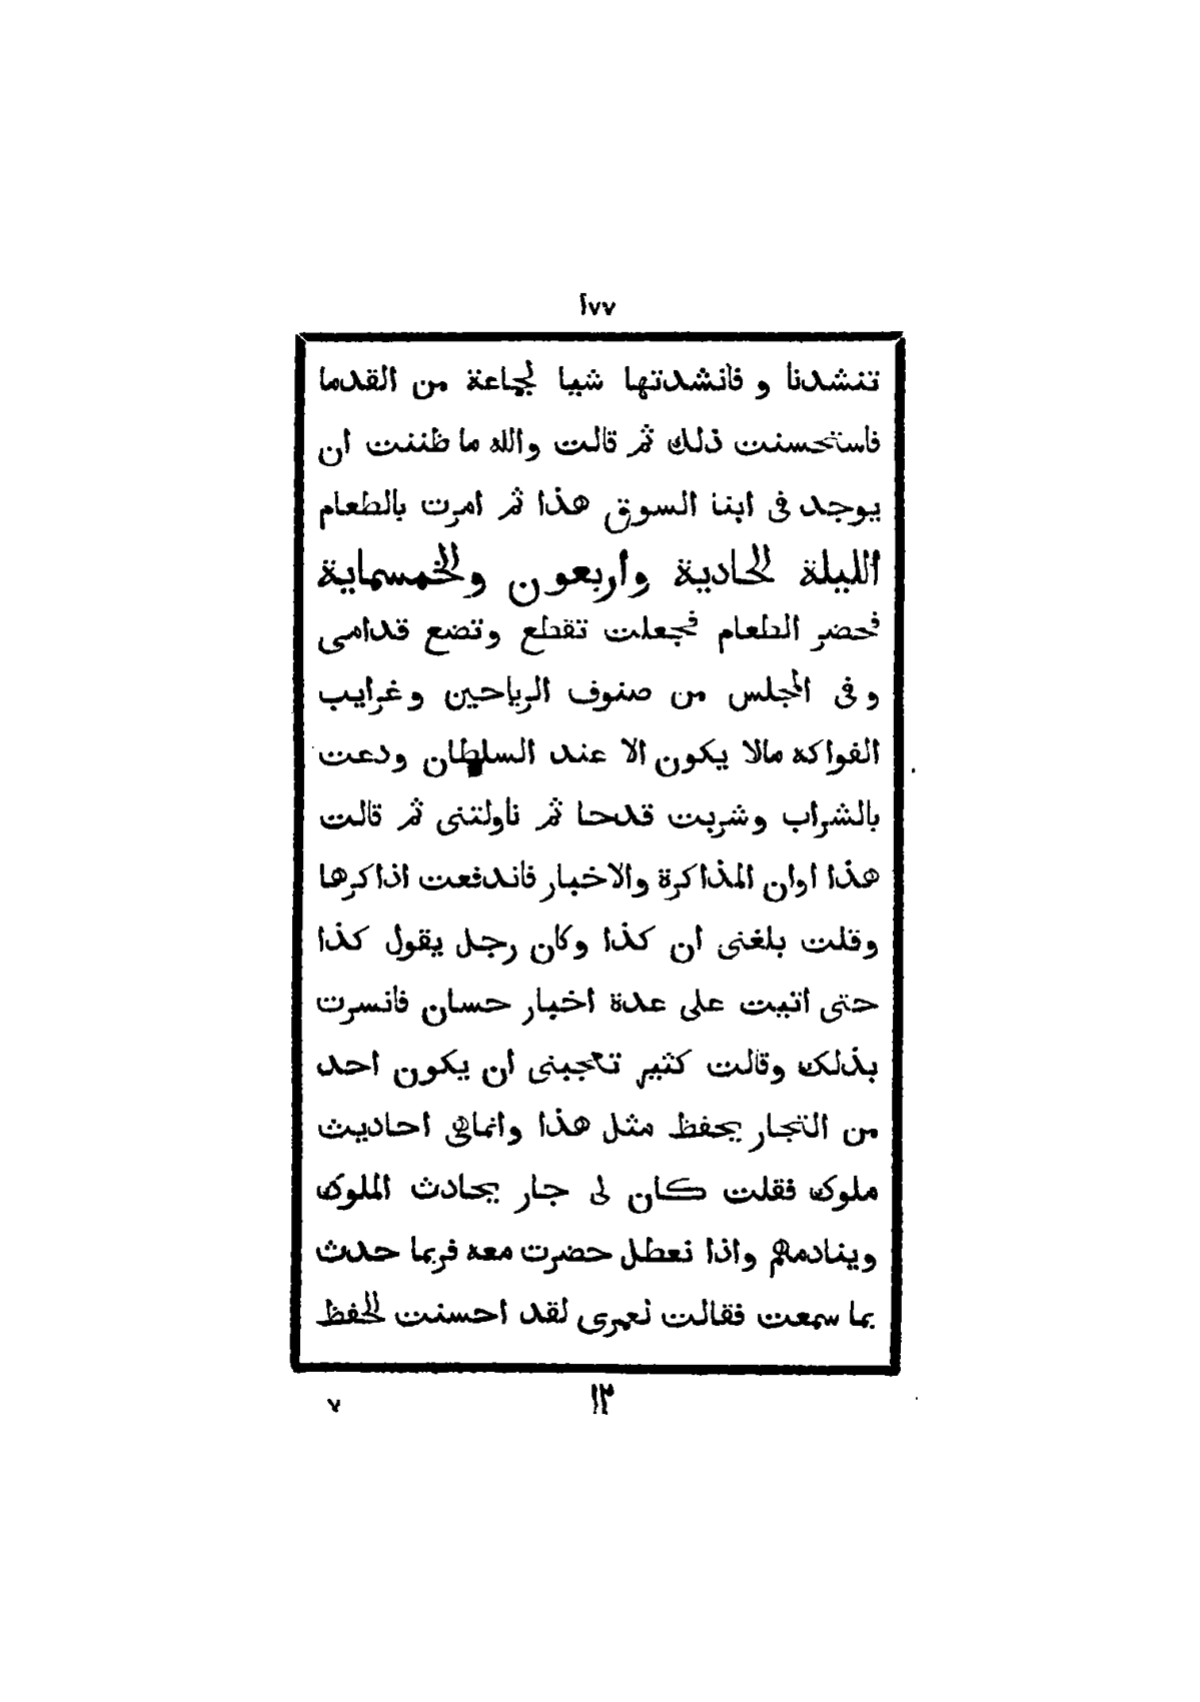 ١٧٧
تنشدنا و فانشدتها شيا لجماعة من القدما
فاستحسنت ذلك ثم قالت والله ما ظننت ان
يوجد فى ابنا السوق هذا ثم امرت بالطعام
الليلة الحادية واربعون والخمسماية
فحضر الطعام فجعلت تقطع وتضع قدامى
و فى المجلس من صنوف الرياحين وغرايب
الفواكه مالا يكون الا عند السلطان ودعت
بالشراب وشربت قدحا ثم ناولتنى ثم قالت
هذا اوان المذاكرة والاخبار فاندفعت اذاكرها
وقلت بلغنى ان كذا وكان رجل يقول كذا
حتى اتيت على عدة اخبار حسان فانسرت
بذلك وقالت كثير تعجبنى ان يكون احد
من التجار يحفظ مثل هذا وانماهى احاديث
ملوك فقلت كان لى جار يحادث الملوك
وينادمهم واذا تعطل حضرت معه فربما حدث
بما سمعت فقالت لعمرى لقد احسنت الحفظ
١٢
٧